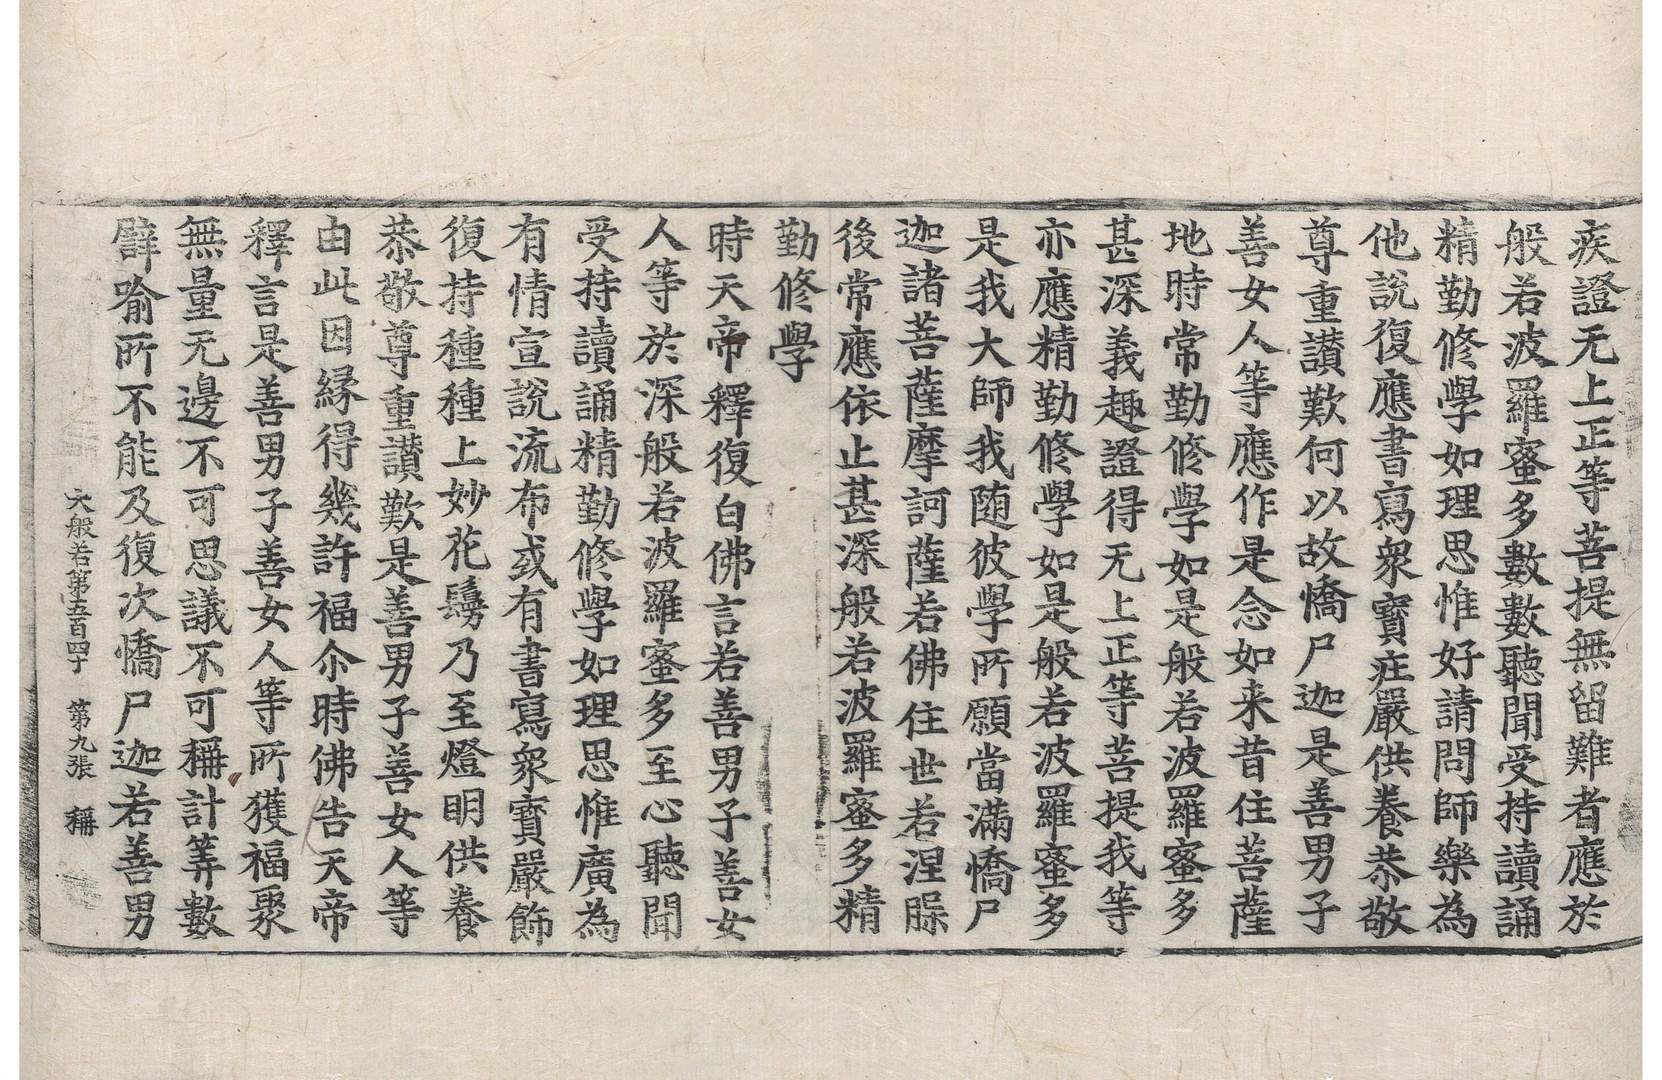 疾證无上正等菩提無留難者應於
般若波羅蜜多數數聽聞受持讀誦
精勤修學如理思惟好請問師樂為
他說復應書寫衆寶庄嚴供養恭敬
尊重讃歎何以故憍尸迦是善男子
善女人等應作是念如来昔住菩薩
地時常勤修學如是般若波羅蜜多
甚深義趣證得无上正等菩提我等
亦應精勤修學如是般若波羅蜜多
是我大師我随彼學所願當滿憍尸
迦諸菩薩摩訶薩若佛住世若涅槃
後常應依止甚深般若波羅蜜多精
勤修學
時天帝釋復白佛言若善男子善女
人等於深般若波羅蜜多至心聽聞
受持讀誦精勤修學如理思惟廣為
有情宣說流布或有書寫衆寶嚴飾
復持種種上妙花鬘乃至燈明供養
恭敬尊重讃歎是善男子善女人等
由此因縁得幾許福尒時佛告天帝
釋言是善男子善女人等所獲福聚
無量无邊不可思議不可稱計筭數
譬喻所不能及復次憍尸迦若善男
大般若第五百四十 第九張 稱